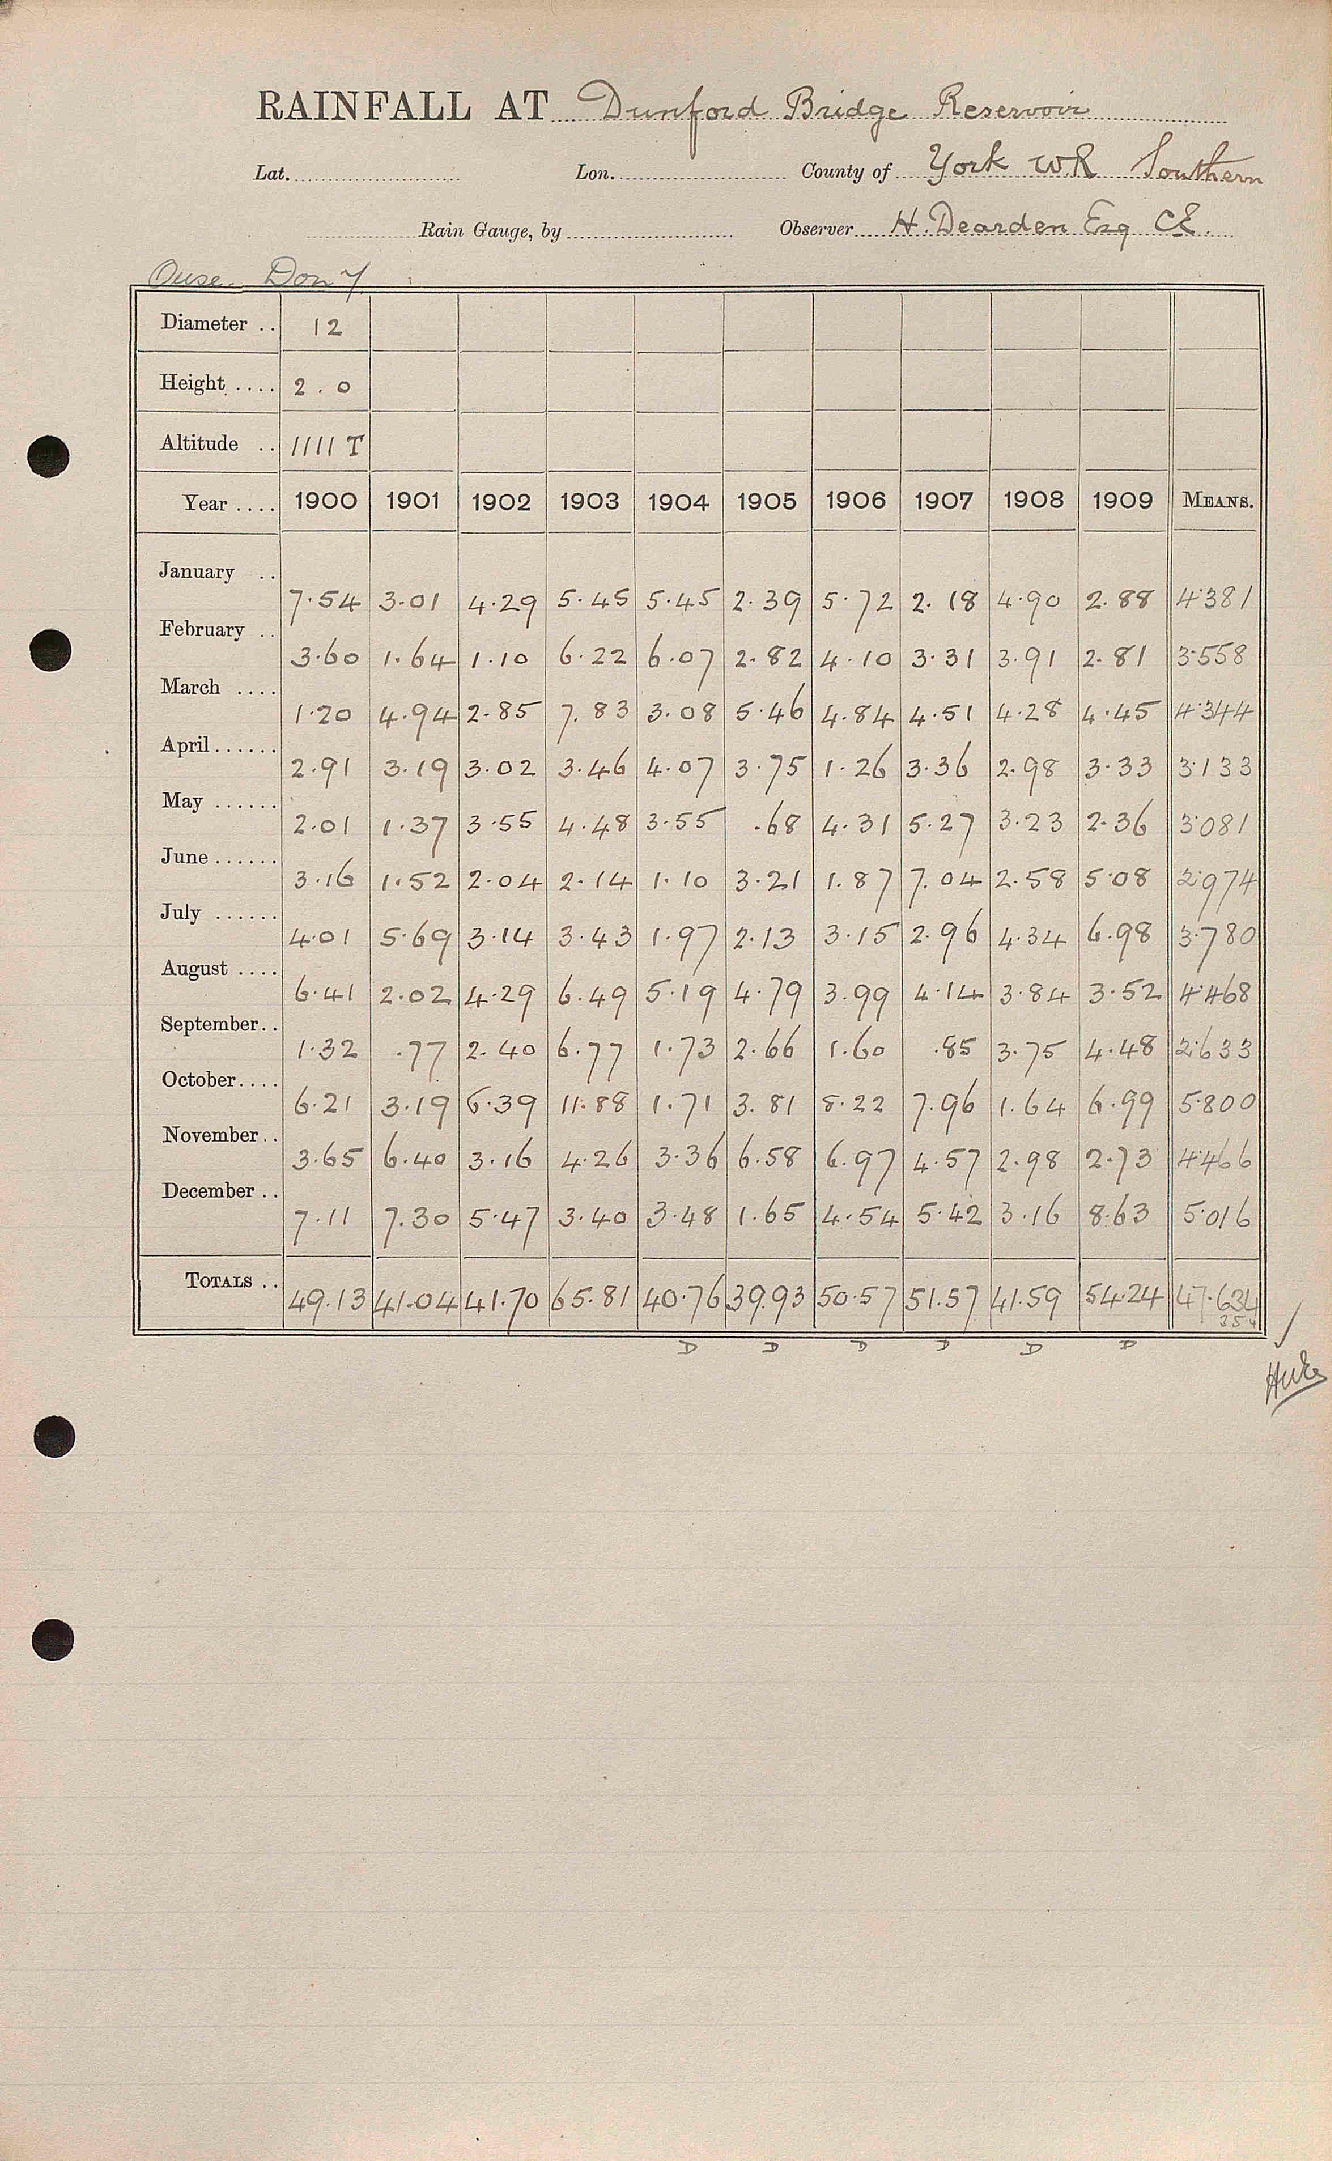 RAINFALL AT Dunford Bridge Reservoir
Lat. Lon. County of York WR Southern
Rain Gauge, by Observer H. Dearden Esq CE.
Ouse. Don 7
Diameter .. 12
Height .... 2.0
Altitude .. 1111 T
Year .... 1900 1901 1902 1903 1904 1905 1906 1907 1908 1909 MEANS.
January .. 7.54 3.01 4.29 5.45 5.45 2.39 5.72 2.18 4.90 2.88 4.381
February .. 3.60 1.64 1.10 6.22 6.07 2.82 4.10 3.31 3.91 2.81 3.558
March .... 1.20 4.94 2.85 7.83 3.08 5.46 4.84 4.51 4.28 4.45 4.344
April ...... 2.91 3.19 3.02 3.46 4.07 3.75 1.26 3.36 2.98 3.33 3.133
May ...... 2.01 1.37 3.55 4.48 3.55 .68 4.31 5.27 3.23 2.36 3.081
June ...... 3.16 1.52 2.04 2.14 1.10 3.21 1.87 7.04 2.58 5.08 2.974
July ...... 4.01 5.69 3.14 3.43 1.97 2.13 3.15 2.96 4.34 6.98 3.780
August .... 6.41 2.02 4.29 6.49 5.19 4.79 3.99 4.14 3.84 3.52 4.468
September.. 1.32 .77 2.40 6.77 1.73 2.66 1.60 .85 3.75 4.48 2.633
October.... 6.21 3.19 6.39 11.88 1.71 3.81 8.22 7.96 1.64 6.99 5.800
November.. 3.65 6.40 3.16 4.26 3.36 6.58 6.97 4.57 2.98 2.73 4.466
December .. 7.11 7.30 5.47 3.40 3.48 1.65 4.54 5.42 3.16 8.63 5.016
TOTALS .. 49.13 41.04 41.70 65.81 40.76 39.93 50.57 51.57 41.59 54.24 47.634
D D D D D D